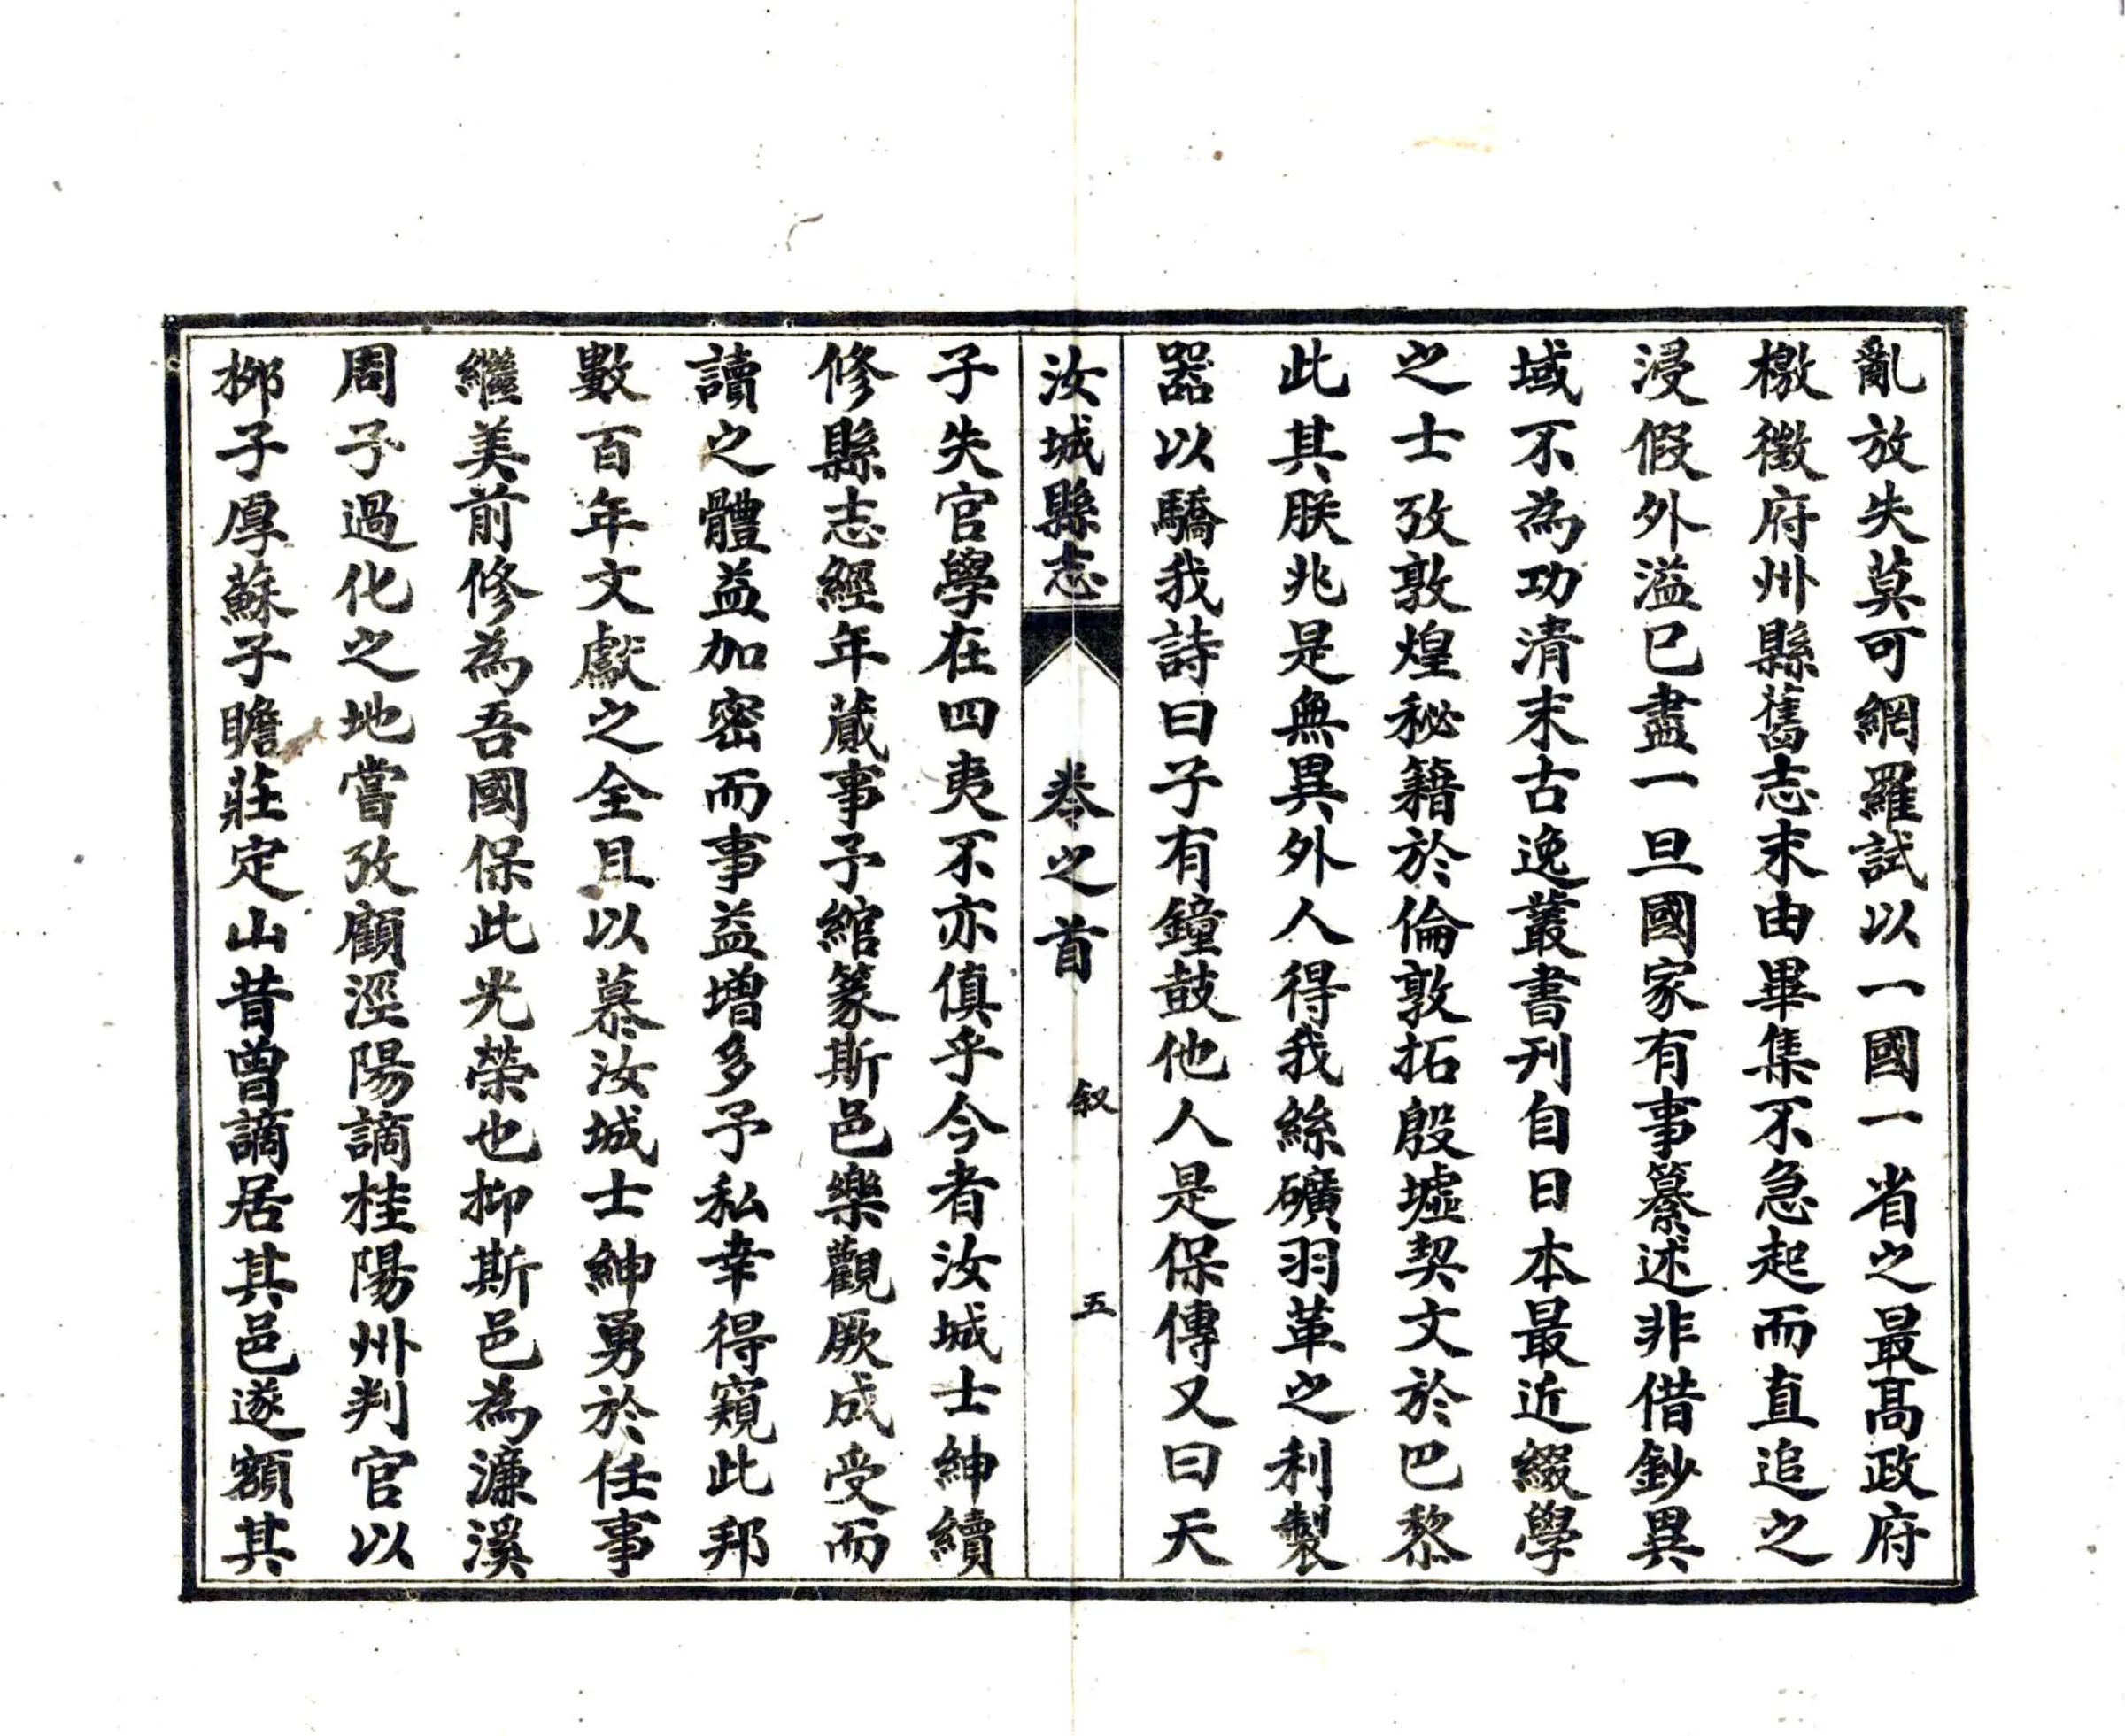 亂放失莫可網羅試以一國一省之最髙政府
檄徵府州縣舊志末由畢集不急起而直追之
浸假外溢已盡一旦國家有事纂述非借鈔異
域不為功清末古逸叢書刊自日本最近綴學
之士攷敦煌秘籍於倫敦拓殷墟契文於巴黎
此其朕兆是無異外人得我絲礦羽革之利製
器以驕我詩曰子有鐘鼓他人是保傳又曰天
汝城縣志 卷之首 叙 五
子失官學在四夷不亦傎乎今者汝城士紳續
修縣志經年蕆事予綰篆斯邑樂觀厥成受而
讀之體益加密而事益增多予私幸得窺此邦
數百年文獻之全且以慕汝城士紳勇於任事
繼美前修為吾國保此光榮也抑斯邑為濂溪
周子過化之地嘗攷顧涇陽謫桂陽州判官以
栁子厚蘇子瞻莊定山昔曾謫居其邑遂額其